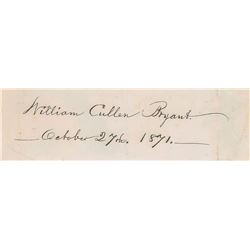 William Cullen Bryant.
October 27th. 1871.